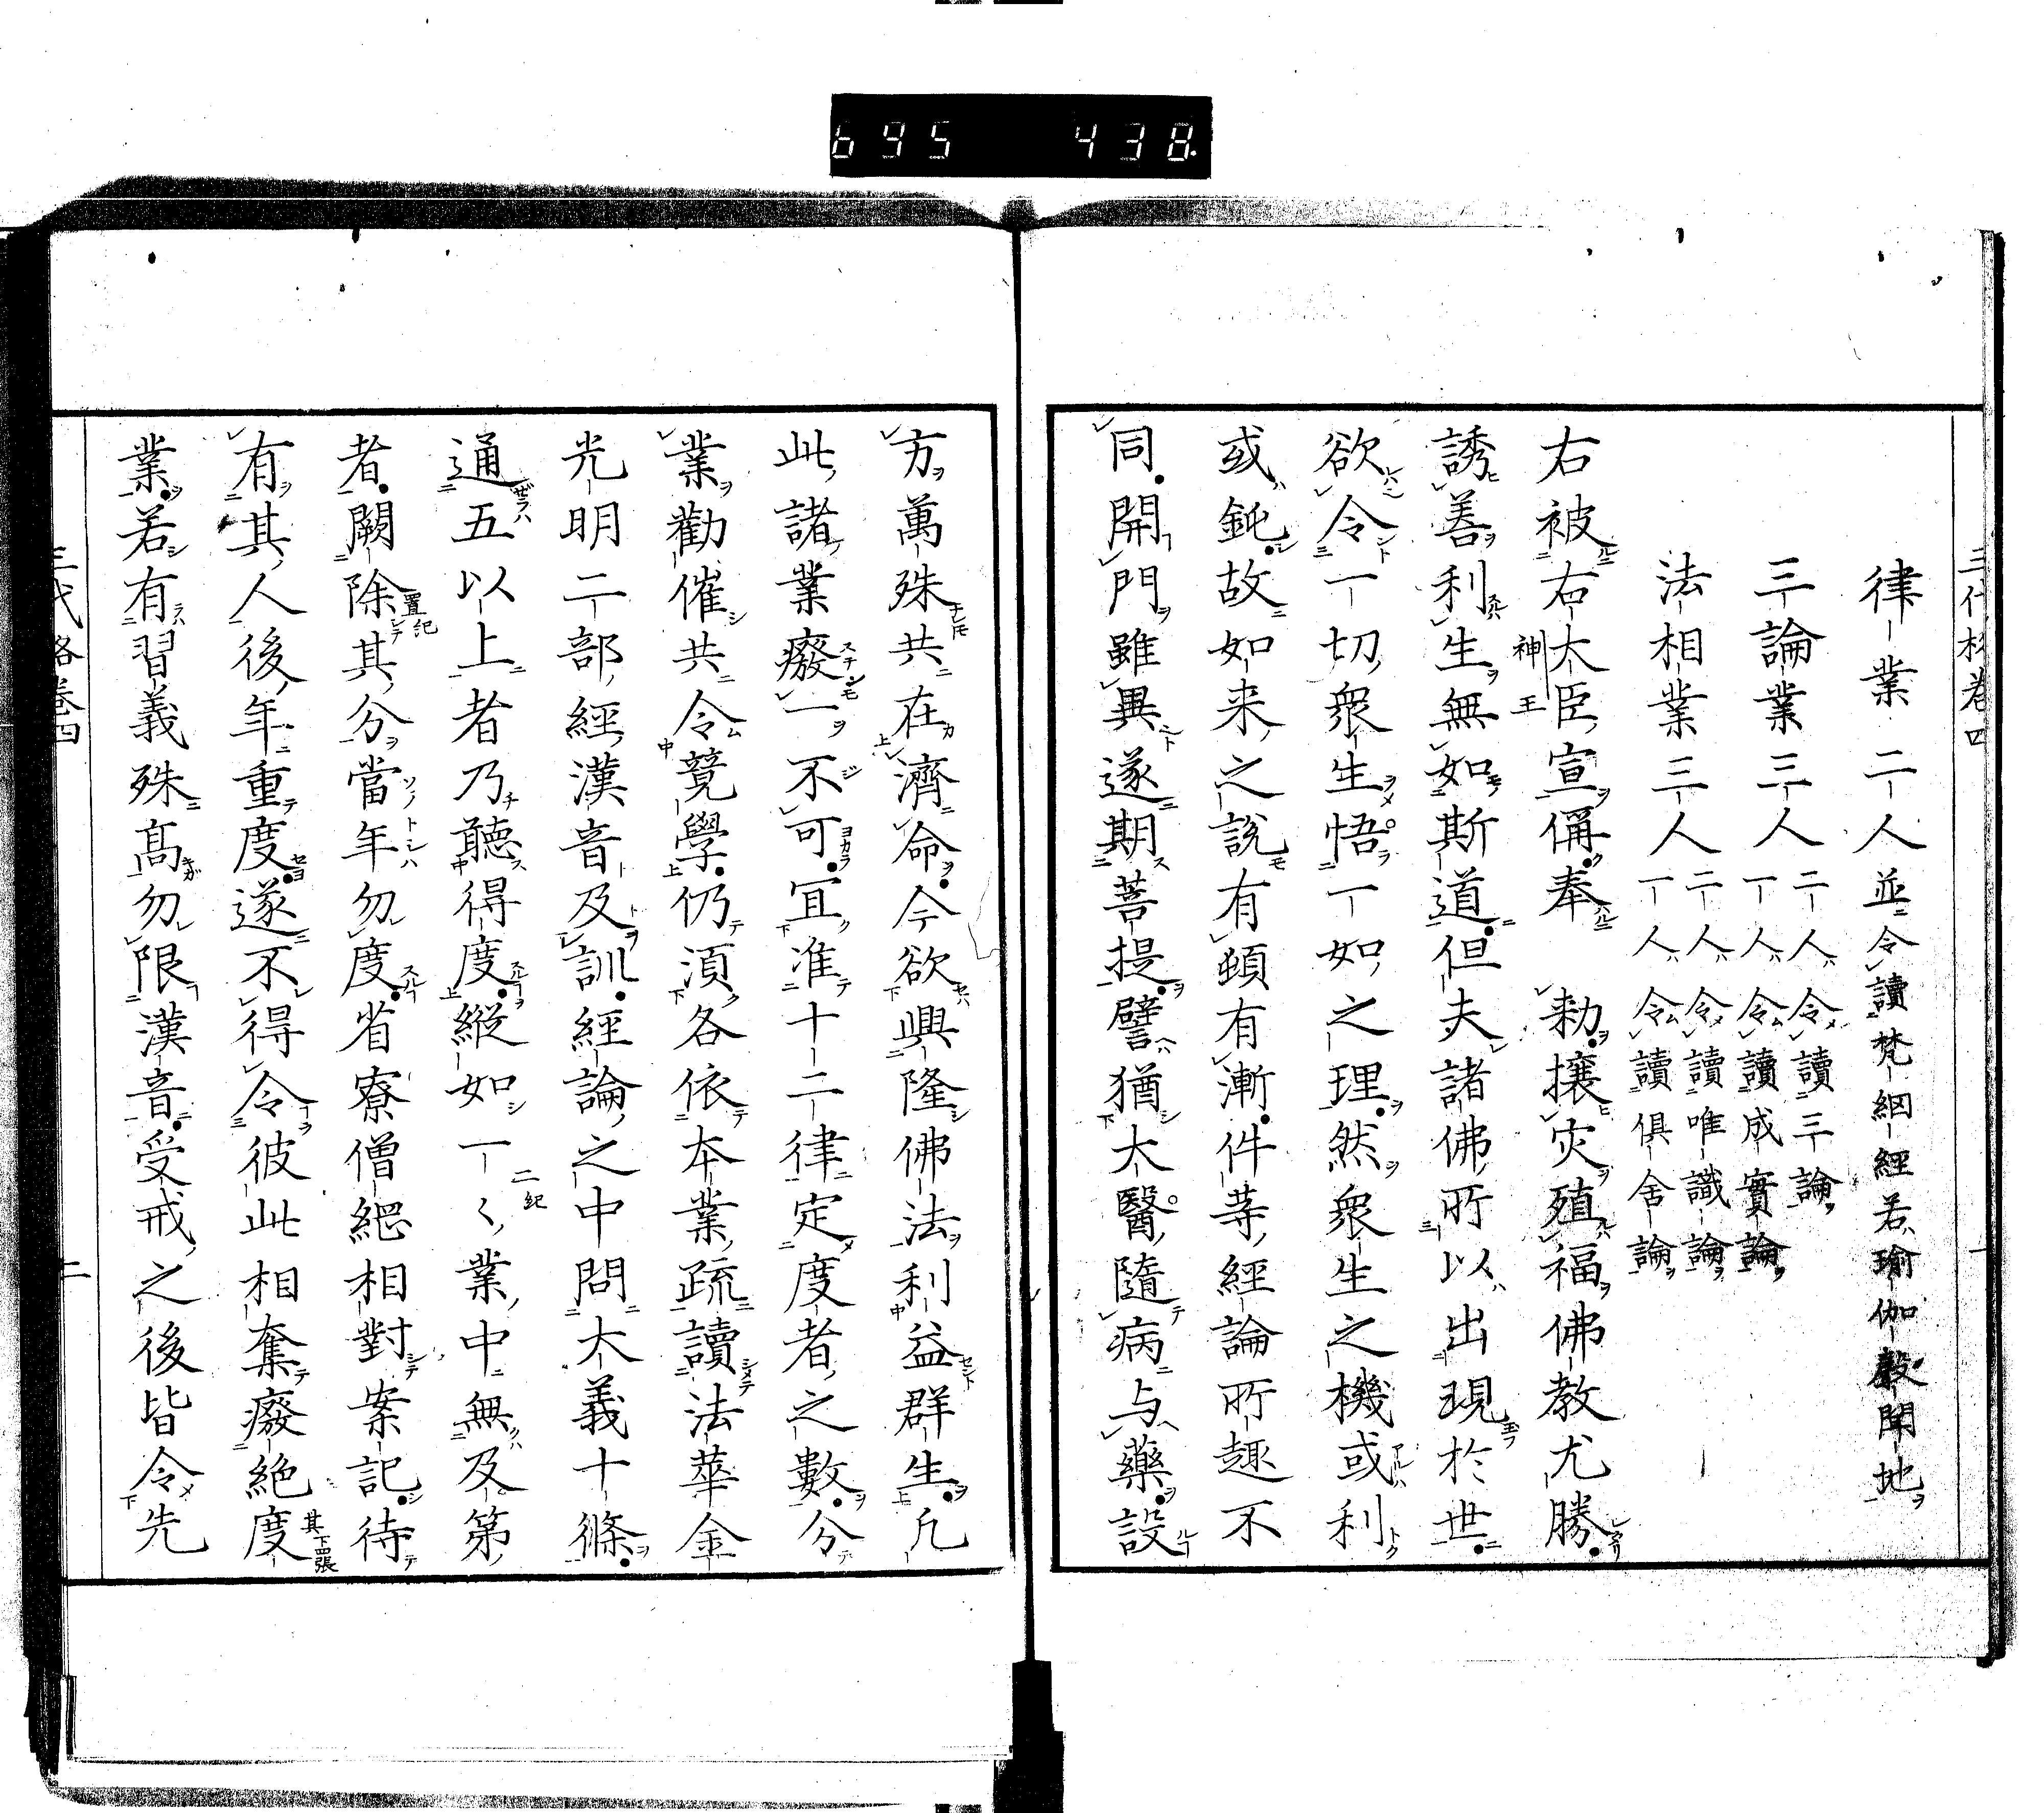 695 438
律業二人並令讀梵網經若瑜伽聲聞地
三論業三人二人令讀三論
一人令讀成實論
法相業三人二人令讀唯識論
一人令讀俱舍論
右被右大臣宣偁奉 勅攘灾殖福佛教尤勝
神王
誘善利生無如斯道但夫諸佛所以出現於世
欲令一切衆生悟一如之理然衆生之機或利
或鈍故如来之説有頓有漸件等經論所趣不
同開門雖異遂期菩提譬猶大醫隨病与藥設
方萬殊共在濟命今欲興隆佛法利益群生凡
此諸業癈一不可冝准十二律定度者之數分
業勸催共令競學仍湏各依本業疏讀法華金
光明二部經漢音及訓經論之中問大義十條
通五以上者乃聽得度縱如一々業中無及第
二紀
者闕除其分當年勿度省寮僧綱相對案記待
置記
有其人後年重度遂不得令彼此相奪癈絶度
其下皿張
業若有習義殊髙勿限漢音受戒之後皆令先
二